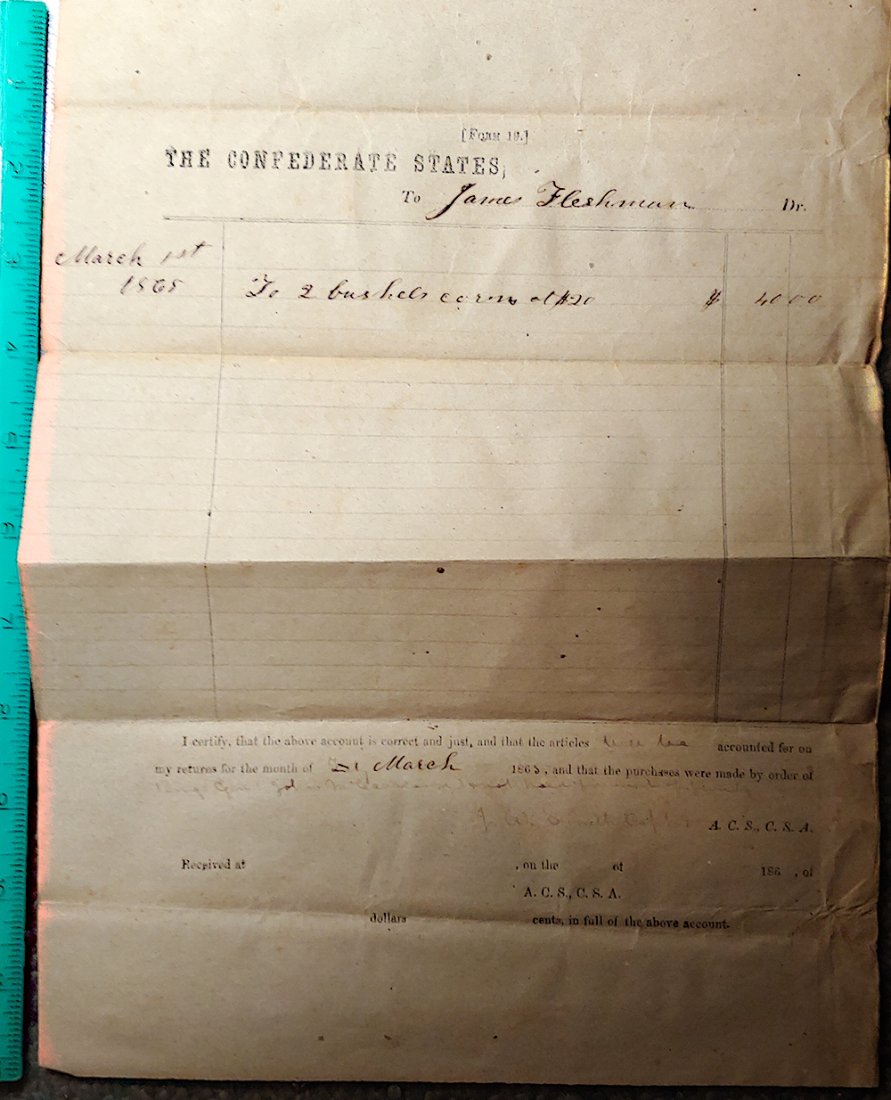 [FORM 19.]
THE CONFEDERATE STATES,
To James Fleshman Dr.
March 1st
1865 To 2 bushels corn at $20 $ 40 00
I certify, that the above account is correct and just, and that the articles accounted for on
my returns for the month of March 1865, and that the purchases were made by order of
A. C. S., C. S. A.
Received at , on the of 186 , of
A. C. S., C. S. A.
dollars cents, in full of the above account.
1
2
3
4
5
6
7